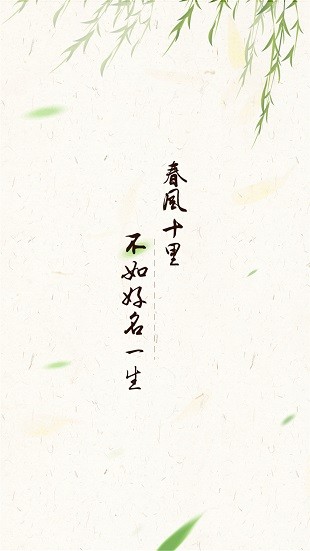 春風十里
不如好名一生